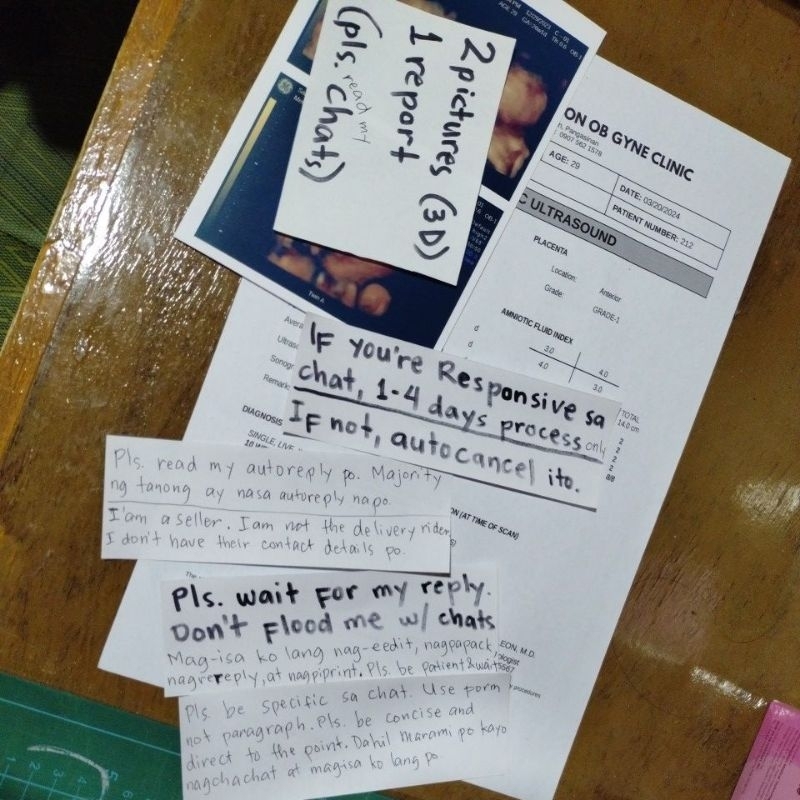 2 pictures (3D)
1 report
(pls. read my
chats)
12/29/2023
C - 01
AGE 29
OB-1
GE
Twin A
ON OB GYNE CLINIC
Pangasinan
0907 562 1578
AGE: 29
DATE: 03/20/2024
PATIENT NUMBER: 212
C ULTRASOUND
PLACENTA
Location: Anterior
Grade: GRADE-1
AMNIOTIC FLUID INDEX
3.0 4.0
4.0 3.0
TOTAL
14.0 cm
2
2
2
2
8/8
Remark
DIAGNOSIS
SINGLE, LIVE
ON (AT TIME OF SCAN)
IF you're Responsive sa
chat, 1-4 days process only
IF not, autocancel ito.
Pls. read my autoreply po. Majority
ng tanong ay nasa autoreply na po.
I'am a seller. I am not the delivery rider
I don't have their contact details po.
Pls. wait for my reply.
Don't Flood me w/ chats
Mag-isa ko lang nag-eedit, nagpapack,
nagrereply, at nagpiprint. Pls. be patient & wait
EON, M.D.
ologist
5667
procedures
Pls. be specific sa chat. Use form
not paragraph. Pls. be concise and
direct to the point. Dahil marami po kayo
nagchachat at magisa ko lang po
6
5
4
3
2
1